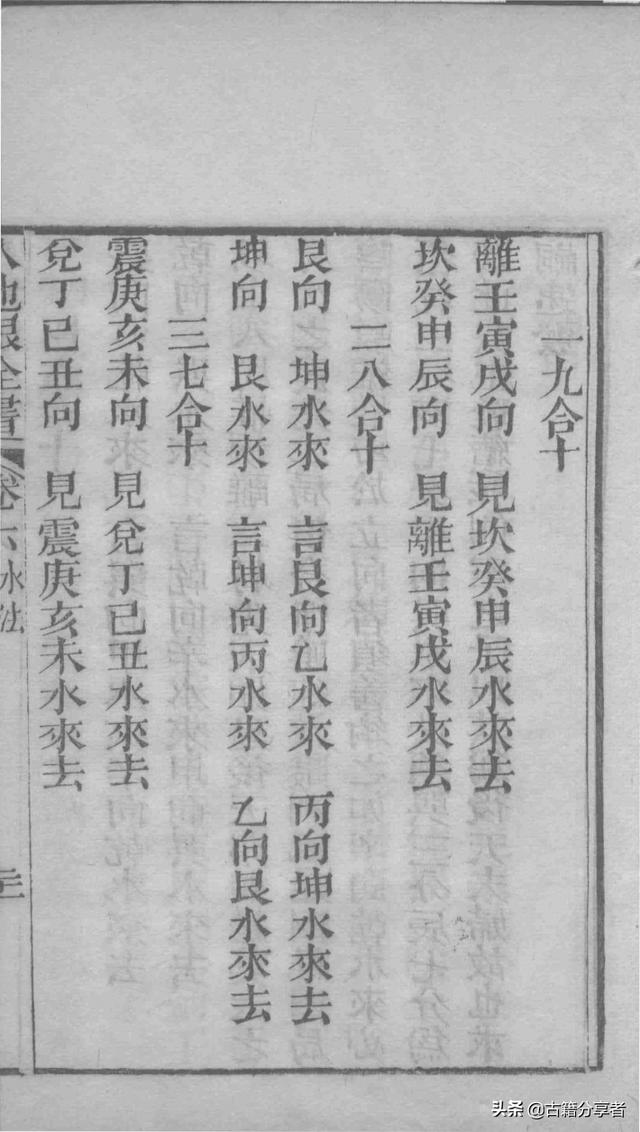 一九合十
離壬寅戌向　見坎癸申辰水來去
坎癸申辰向　見離壬寅戌水來去
二八合十
艮向　坤水來　言艮向乙水來　丙向坤水來去
坤向　艮水來　言坤向丙水來　乙向艮水來去
三七合十
震庚亥未向　見兌丁巳丑水來去
兌丁巳丑向　見震庚亥未水來去
地眼全書　卷六水法
头条 @古籍分享者